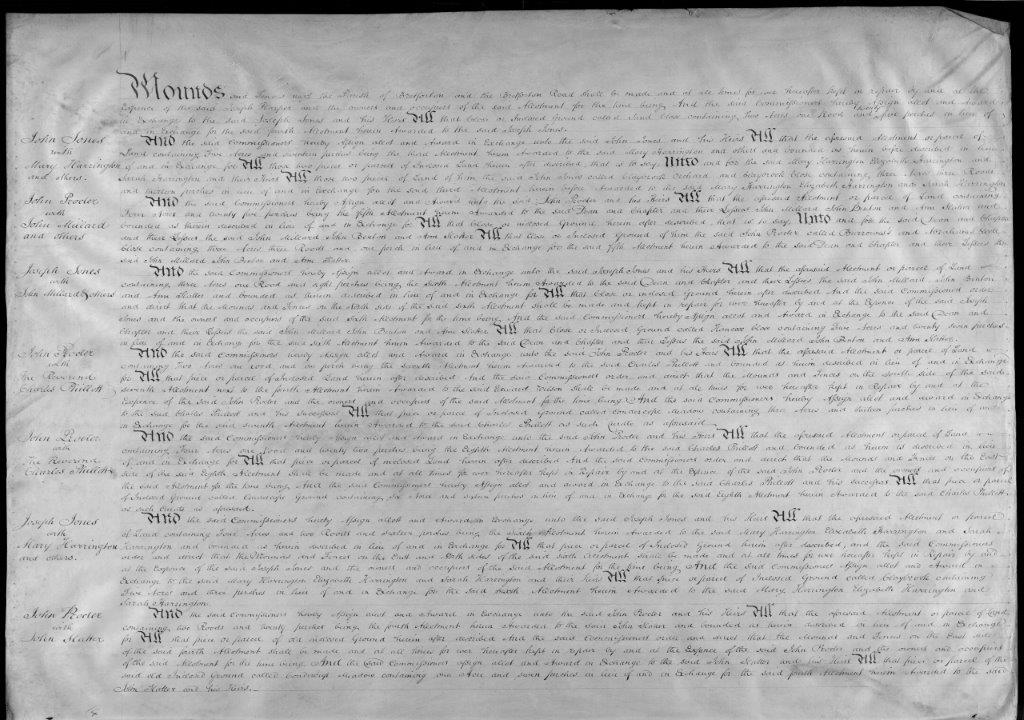 Mounds and Fences next the Parish of Bretforton and the Bretforton Road shall be made and at all times for ever hereafter kept in repair by and at the
Expence of the said Joseph Harper and the owners and occupiers of the said Allotment for the time being And the said Commissioners hereby Assign allot and Award
in Exchange to the said Joseph Jones and his Heirs All that Close or Inclosed Ground called Sand Close containing Two Acres one Rood and five perches in lieu of
and in Exchange for the said fourth Allotment herein Awarded to the said Joseph Jones.
John Jones
with
Mary Harrington
and others.
And the said Commissioners hereby Assign allot and Award in Exchange unto the said John Jones and his Heirs All that the aforesaid Allotment or parcel of
Land containing Five Acres and seventeen perches being the third Allotment herein Awarded to the said Mary Harrington and others and bounded as herein before described in lieu
of and in Exchange for All those two pieces or parcels of Inclosed Land herein after described that is to say Unto and for the said Mary Harrington Elizabeth Harrington and
Sarah Harrington and their Heirs All those two pieces of Land of him the said John Jones called Claybrook Orchard and Claybrook Close containing three Acres three Roods
and thirteen perches in lieu of and in Exchange for the said third Allotment herein before Awarded to the said Mary Harrington Elizabeth Harrington and Sarah Harrington
John Procter
with
John Millard
and others
And the said Commissioners hereby Assign allot and Award unto the said John Procter and his Heirs All that the aforesaid Allotment or parcel of Land containing
Four Acres and twenty five perches being the fifth Allotment herein Awarded to the said Dean and Chapter and their Lessees John Millard John Binton and Ann Slatter and
bounded as herein described in lieu of and in Exchange for All that Close or inclosed Ground herein after described that is to say Unto and for the said Dean and Chapter
and their Lessees the said John Millard John Binton and Ann Slatter All that Close or Inclosed Ground of him the said John Procter called Burrows's and
Close containing three Acres three Roods and one perch in lieu of and in Exchange for the said fifth Allotment herein Awarded to the said Dean and Chapter and their Lessees the
said John Millard John Binton and Ann Slatter
Joseph Jones
with
John Millard & others
And the said Commissioners hereby Assign allot and Award in Exchange unto the said Joseph Jones and his Heirs All that the aforesaid Allotment or parcel of Land
containing three Acres one Rood and eight perches being the sixth Allotment herein Awarded to the said Dean and Chapter and their Lessees the said John Millard John Binton
and Ann Slatter and bounded as herein described in lieu of and in Exchange for All that Close or inclosed Ground herein after described And the said Commissioners order
and direct that the Mounds and Fences on the North side of the said sixth Allotment shall be made and kept in repair for ever hereafter by and at the Expence of the said Joseph
Jones and the owners and occupiers of the said sixth Allotment for the time being. And the said Commissioners hereby Assign allot and Award in Exchange to the said Dean and
Chapter and their Lessees the said John Millard John Binton and Ann Slatter All that Close or Inclosed Ground called Close containing Five Acres and twenty seven perches
in lieu of and in Exchange for the said sixth Allotment herein Awarded to the said Dean and Chapter and their Lessees the said John Millard John Binton and Ann Slatter.
John Procter
with
the Reverend
Charles Phillott
And the said Commissioners hereby Assign allot and Award in Exchange unto the said John Procter and his Heirs All that the aforesaid Allotment or parcel of Land
containing Two Acres one rood and six perch being the seventh Allotment herein Awarded to the said Charles Phillott and bounded as herein described in lieu of and in Exchange
for All that piece or parcel of Inclosed Land herein after described And the said Commissioners order and direct that the Mounds and Fences on the South side of the said
seventh Allotment next to the fourth Allotment herein Awarded to the said Edward shall be made and at all times for ever hereafter kept in Repair by and at the
Expence of the said John Procter and the owners and occupiers of the said Allotment for the time being And the said Commissioners hereby Assign allot and award in Exchange
to the said Charles Phillott and his Successors All that piece or parcel of Inclosed Ground called Meadow containing three Acres and sixteen perches in lieu of and
in Exchange for the said seventh Allotment herein Awarded to the said Charles Phillott as such as aforesaid
John Procter
with
The Reverend
Charles Phillott
And the said Commissioners hereby Assign allot and Award in Exchange unto the said John Procter and his Heirs All that the aforesaid Allotment or parcel of Land
containing Four Acres one Rood and twenty two perches being the Eighth Allotment herein Awarded to the said Charles Phillott and bounded as herein is described in lieu
of and in Exchange for All that piece or parcel of inclosed Land herein after described And the said Commissioners order and direct that the Mounds and Fences on the East
side of the said Eighth Allotment shall be made and at all times for ever hereafter kept in Repair by and at the Expence of the said John Procter and the owners and occupiers of
the said Allotment for the time being. And the said Commissioners hereby Assign allot and award in Exchange to the said Charles Phillott and his successors All that piece or parcel
of Inclosed Ground called Ground containing six Acres and sixteen perches in lieu of and in Exchange for the said Eighth Allotment herein Awarded to the said Charles Phillott
as such as aforesaid.
Joseph Jones
with
Mary Harrington
and others.
And the said Commissioners hereby Assign allot and Award in Exchange unto the said Joseph Jones and his Heirs All that the aforesaid Allotment or parcel
of Land containing Four Acres and two Roods and sixteen perches being the Allotment herein Awarded to the said Mary Harrington Elizabeth Harrington and Sarah
Harrington and bounded as herein described in lieu of and in Exchange for All that piece or parcel of Inclosed Ground herein after described and the said Commissioners
order and direct that the Mounds and Fences on the East and North sides of the said sixth Allotment shall be made and at all times for ever hereafter kept in Repair by and
at the Expence of the said Joseph Jones and the owners and occupiers of the said Allotment for the time being, And the said Commissioners Assign allot and Award in
Exchange to the said Mary Harrington Elizabeth Harrington and Sarah Harrington and their Heirs All that piece or parcel of Inclosed Ground called Claybrook containing
Five Acres and three perches in lieu of and in Exchange for the said sixth Allotment herein Awarded to the said Mary Harrington Elizabeth Harrington and
Sarah Harrington.
John Procter
with
John Slatter
And the said Commissioners hereby Assign allot and Award in Exchange unto the said John Procter and his Heirs All that the aforesaid Allotment or parcel of Land
containing two Roods and twenty perches being the fourth Allotment herein Awarded to the said John Slatter and bounded as herein described in lieu of and in Exchange
for All that piece or parcel of old inclosed Ground herein after described And the said Commissioners order and direct that the Mounds and Fences on the East side
of the said fourth Allotment shall be made and at all times for ever hereafter kept in repair by and at the Expence of the said John Procter and the owners and occupiers
of the said Allotment for the time being. And the said Commissioners Assign allot and Award in Exchange to the said John Slatter and his Heirs All that piece or parcel of the
said old Inclosed Ground called Meadow containing one Acre and seven perches in lieu of and in Exchange for the said fourth Allotment herein Awarded to the said
John Slatter and his Heirs.